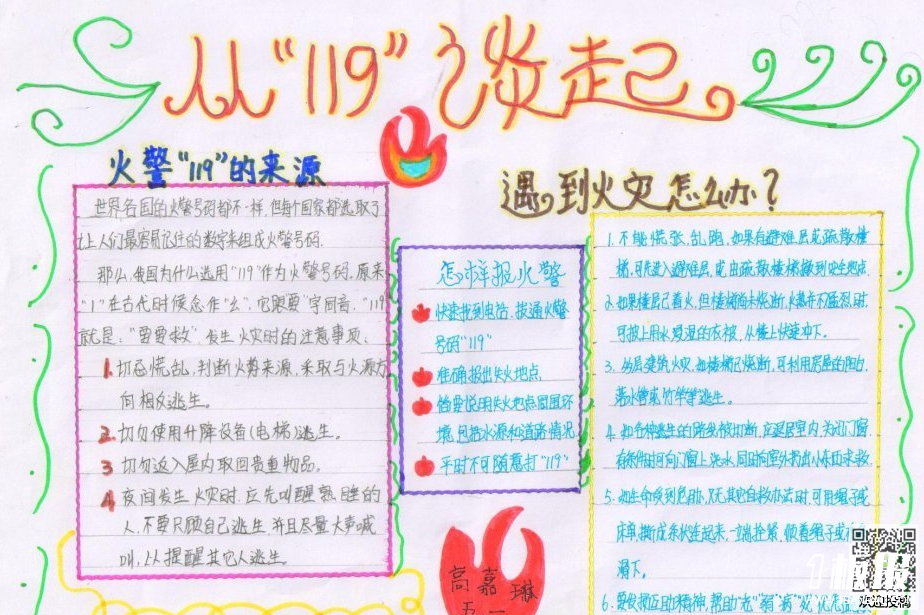 从“119”谈走起
火警“119”的来源
世界各国的火警号码都不一样,但每个国家都选取了
让人们最容易记住的数字来组成火警号码.
那么,我国为什么选用“119”作为火警号码,原来
“1”在古代时候念作“幺”,它跟“要”字同音,“119
就是:“要要救”,发生火灾时的注意事项:
1.切忌慌乱,判断火势来源,采取与火源方
向相反逃生。
2.切勿使用升降设备(电梯)逃生。
3 切勿返入屋内取回贵重物品。
4 夜间发生火灾时,应先叫醒熟睡的
人,不要只顾自己逃生,并且尽量大声喊
叫,以提醒其它人逃生。
怎样报火警
快速找到电话,拨通火警
号码“119”
准确报出失火地点
简要说明失火地点周围环
境,包括水源和道路情况
平时不可随意打“119”
高嘉琳
五一
遇到火灾怎么办?
1.不能慌张、乱跑,如果有避难层或疏散楼
梯,可先进入避难层,或由疏散楼梯撤到安全地点.
2.如果楼层已着火,但楼梯尚未烧断,火势并不猛烈时,
可披上用水浸湿的衣被,从楼上快速冲下。
3.多层建筑火灾,如楼梯已烧断,可利用房屋的阳台、
落水管或竹竿等逃生。
4.如各种逃生的路线被切断,应退居室内,关闭门窗
有条件时可向门窗上浇水,同时向室外扔出小东西求救.
5.如生命受到危胁,又无其它自救办法时,可用绳子或
床单撕成条状连起来,一端拴紧,顺着绳子或
滑下。
6.要发扬互助精神,帮助老